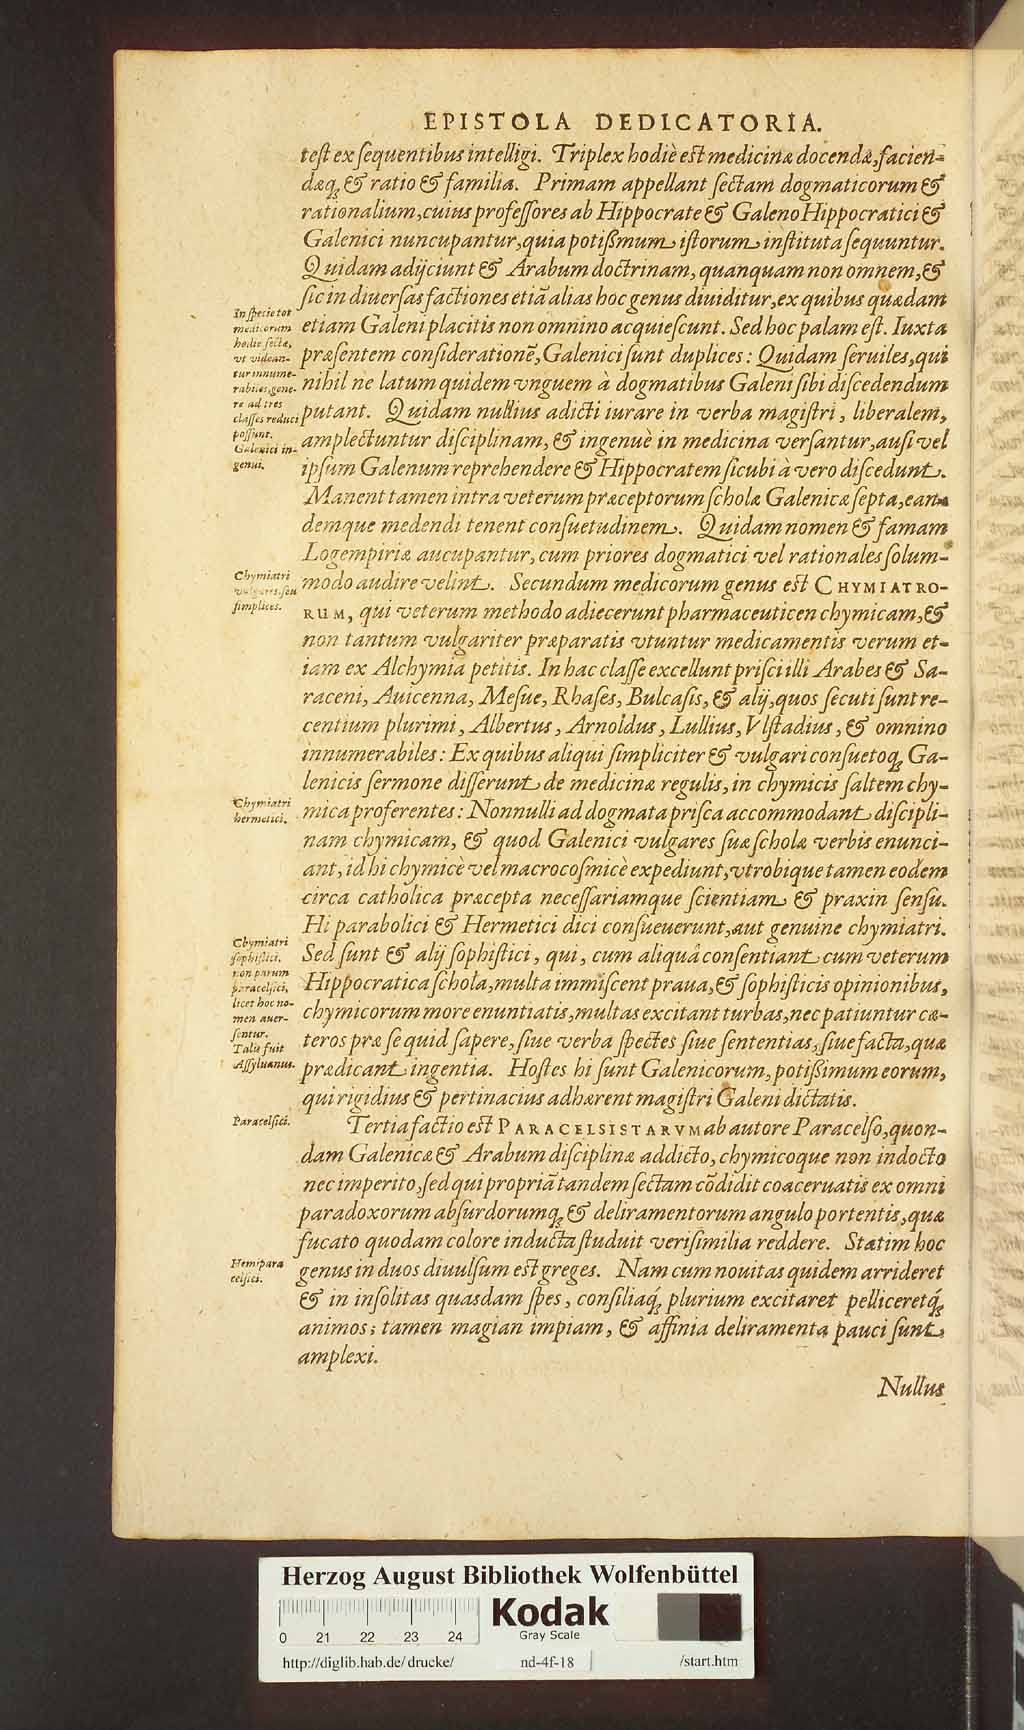 EPISTOLA DEDICATORIA.
test ex sequentibus intelligi. Triplex hodiè est medicinæ docendæ, facien-
dæq; & ratio & familia. Primam appellant sectam dogmaticorum &
rationalium, cuius professores ab Hippocrate & Galeno Hippocratici &
Galenici nuncupantur, quia potißimum istorum instituta sequuntur.
Quidam adijciunt & Arabum doctrinam, quanquam non omnem, &
sic in diuersas factiones etiā alias hoc genus diuiditur, ex quibus quædam
etiam Galeni placitis non omnino acquiescunt. Sed hoc palam est. Iuxta
præsentem considerationē, Galenici sunt duplices: Quidam seruiles, qui
nihil ne latum quidem vnguem à dogmatibus Galeni sibi discedendum
putant. Quidam nullius adicti iurare in verba magistri, liberalem,
amplectuntur disciplinam, & ingenuè in medicina versantur, ausi vel
ipsum Galenum reprehendere & Hippocratem sicubi à vero discedunt.
Manent tamen intra veterum præceptorum scholæ Galenicæ septa, ean-
demque medendi tenent consuetudinem. Quidam nomen & famam
Logempiriæ aucupantur, cum priores dogmatici vel rationales solum-
modo audire velint. Secundum medicorum genus est CHYMIATRO-
RUM, qui veterum methodo adiecerunt pharmaceuticen chymicam, &
non tantum vulgariter præparatis vtuntur medicamentis verum et-
iam ex Alchymia petitis. In hac classe excellunt prisci illi Arabes & Sa-
raceni, Auicenna, Mesue, Rhases, Bulcasis, & alij, quos secuti sunt re-
centium plurimi, Albertus, Arnoldus, Lullius, Vlstadius, & omnino
innumerabiles: Ex quibus aliqui simpliciter & vulgari consuetoq; Ga-
lenicis sermone disserunt de medicinæ regulis, in chymicis saltem chy-
mica proferentes: Nonnulli ad dogmata prisca accommodant discipli-
nam chymicam, & quod Galenici vulgares suæ scholæ verbis enunci-
ant, id hi chymicè vel macrocosmicè expediunt, vtrobique tamen eodem
circa catholica præcepta necessariamque scientiam & praxin sensu.
Hi parabolici & Hermetici dici consueuerunt, aut genuine chymiatri.
Sed sunt & alij sophistici, qui, cum aliquâ consentiant cum veterum
Hippocratica schola, multa immiscent praua, & sophisticis opinionibus,
chymicorum more enuntiatis, multas excitant turbas, nec patiuntur cæ-
teros præ se quid sapere, siue verba spectes siue sententias, siue facta, quæ
prædicant ingentia. Hostes hi sunt Galenicorum, potißimum eorum,
qui rigidius & pertinacius adhærent magistri Galeni dictatis.
Tertia factio est PARACELSISTARVM ab autore Paracelso, quon-
dam Galenicæ & Arabum disciplinæ addicto, chymicoque non indocto
nec imperito, sed qui propriā tandem sectam cōdidit coaceruatis ex omni
paradoxorum absurdorumq; & deliramentorum angulo portentis, quæ
fucato quodam colore inducta studuit verisimilia reddere. Statim hoc
genus in duos diuulsum est greges. Nam cum nouitas quidem arrideret
& in insolitas quasdam spes, consiliaq́; plurium excitaret pelliceretq́;
animos; tamen magian impiam, & affinia deliramenta pauci sunt
amplexi.
Nullus
In specie tot
medicorum
hodie sectæ,
vt videan-
tur innume-
rabiles, gene-
re ad tres
classes reduci
possunt.
Galenici in-
genui.
Chymiatri
vulgares, seu
simplices.
Chymiatri
hermetici.
Chymiatri
sophistici.
non parum
paracelsici,
licet hoc no-
men auer-
sentur.
Talis fuit
Assyluanus.
Paracelsici.
Hemipara
celsici.
Herzog August Bibliothek Wolfenbüttel
Kodak
Gray Scale
0 21 22 23 24
http://diglib.hab.de/drucke/ nd-4f-18 /start.htm